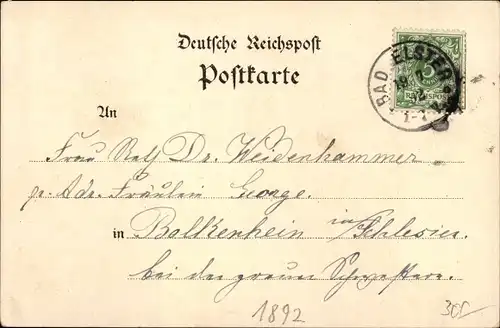 Deutsche Reichspost
Postkarte
BAD ELSTER
5
REICHSPOST
An
Frau Dr. Weidenhammer
Adr. Fräulein George.
in Bolkenhein in Schlesien
bei den grauen Schwestern.
1892
305